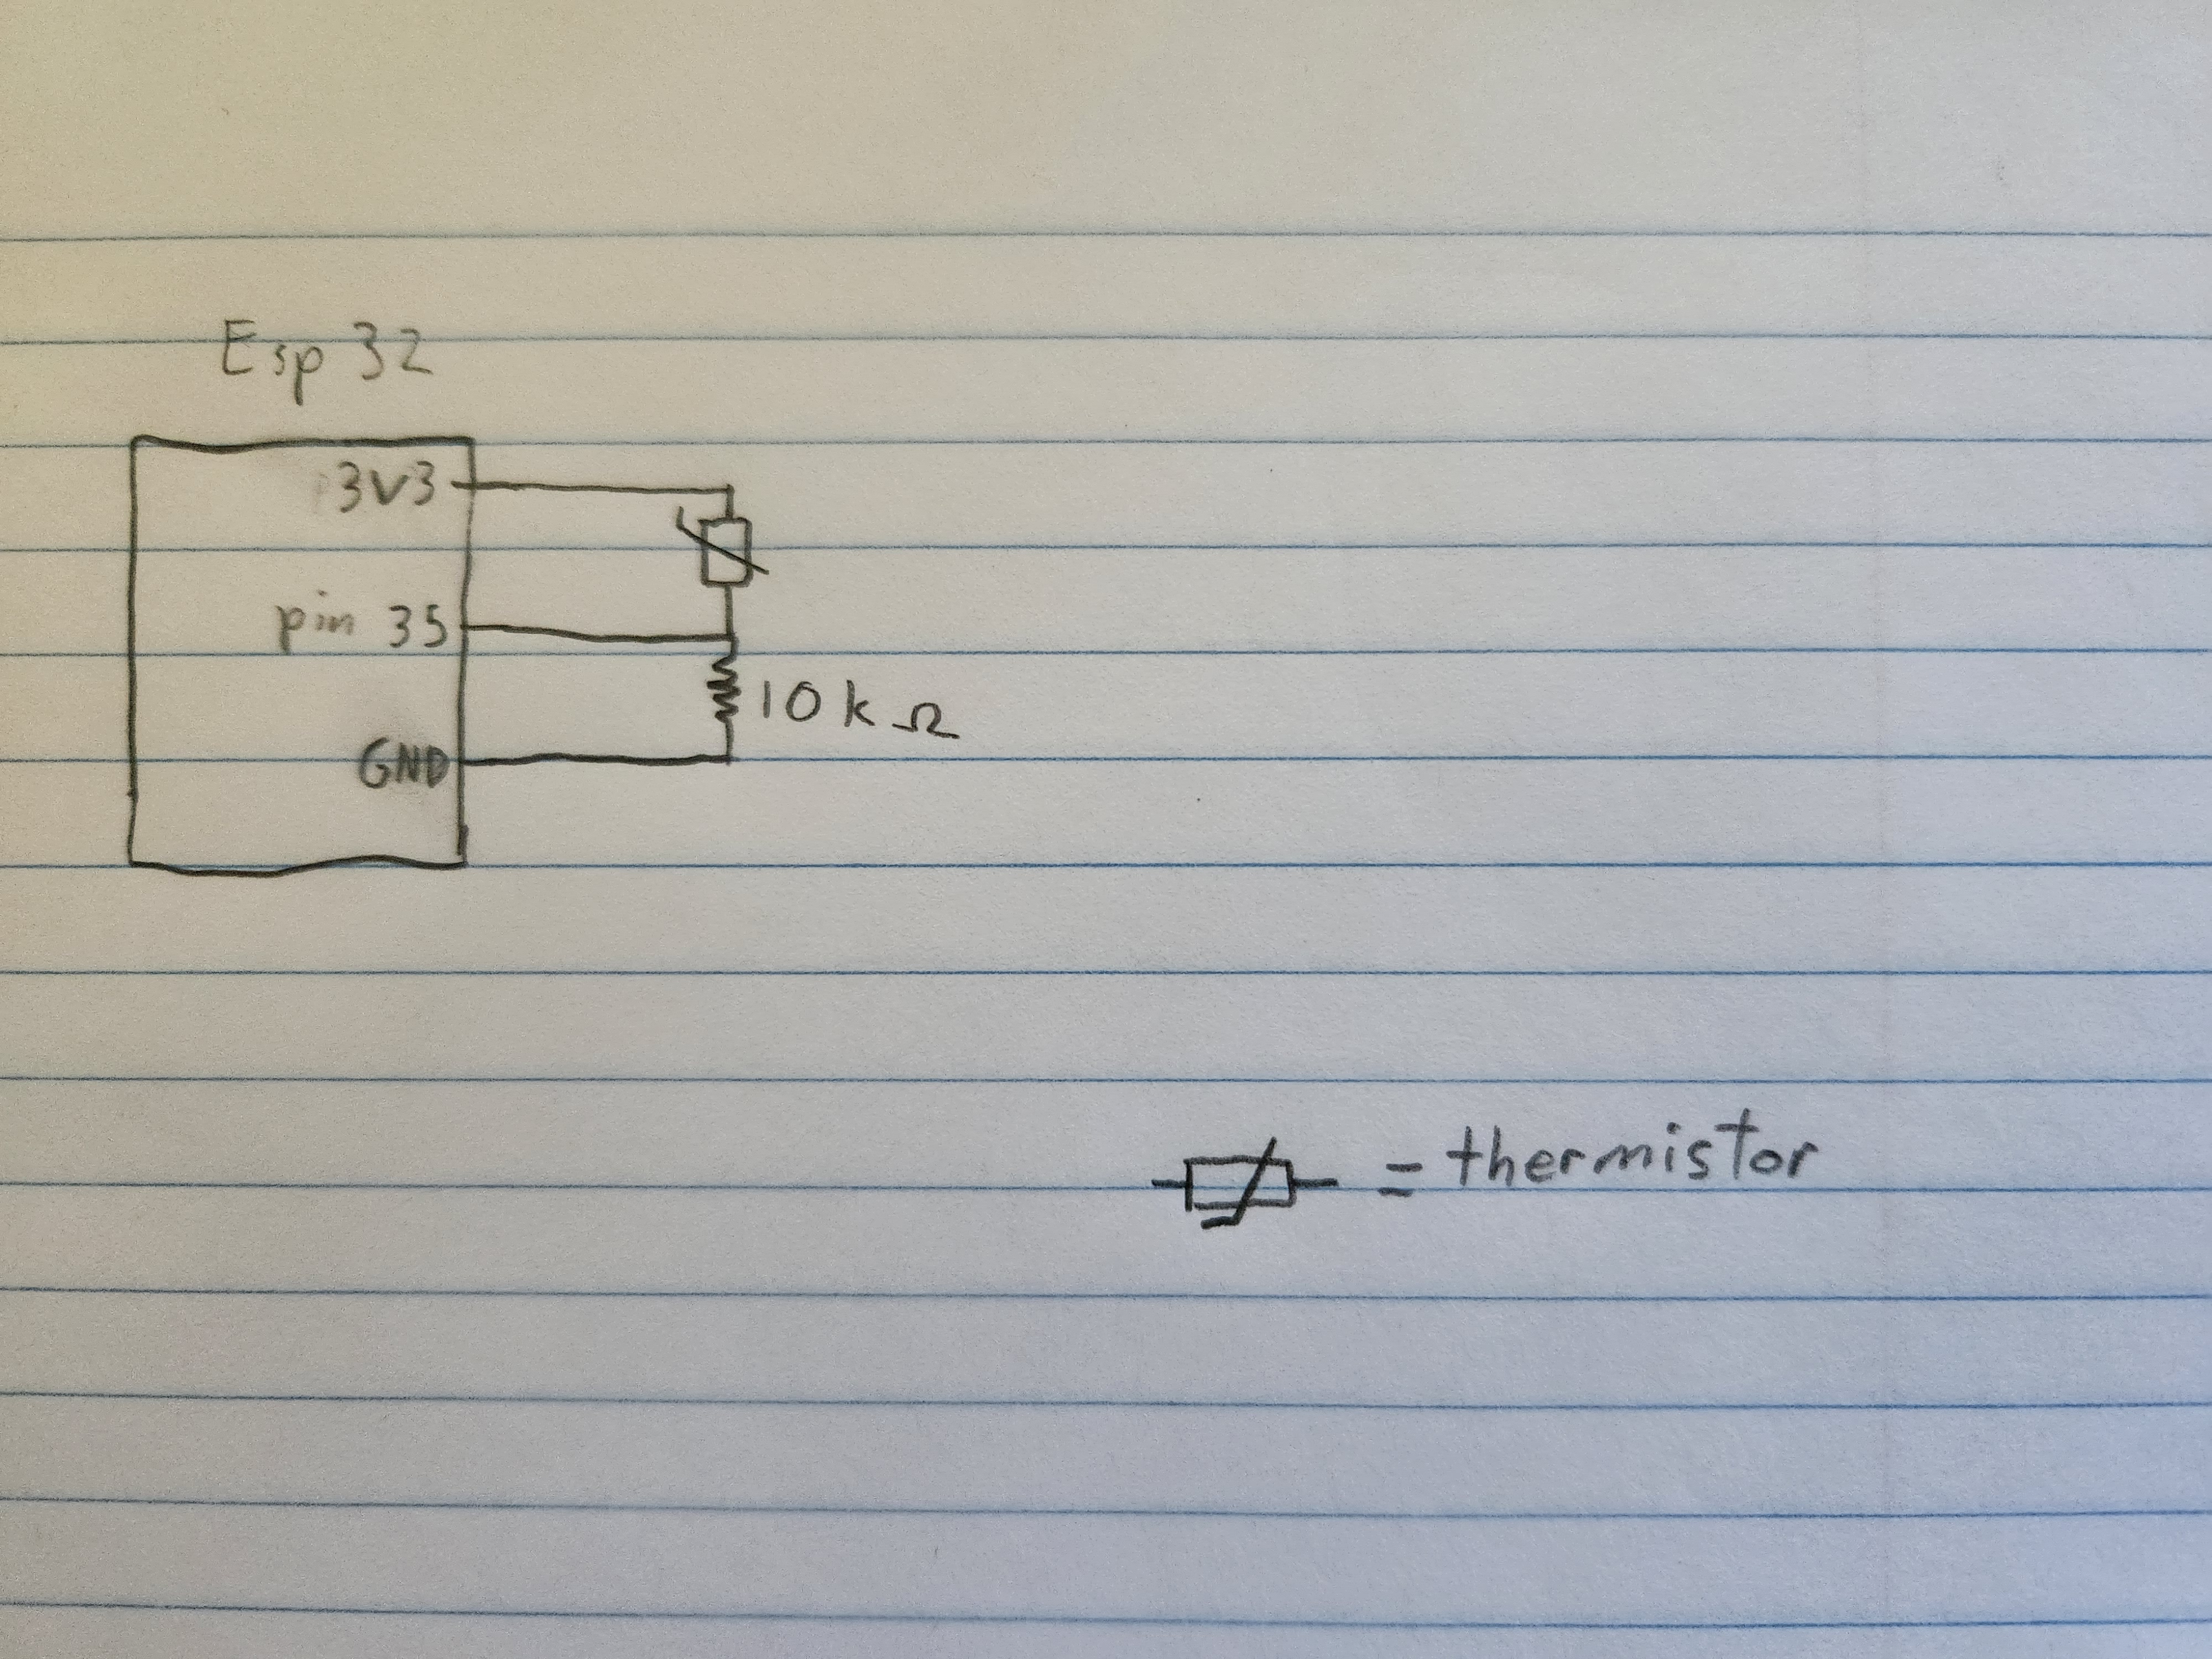 Esp 32
3v3
pin 35
10 k Ω
GND
= thermistor